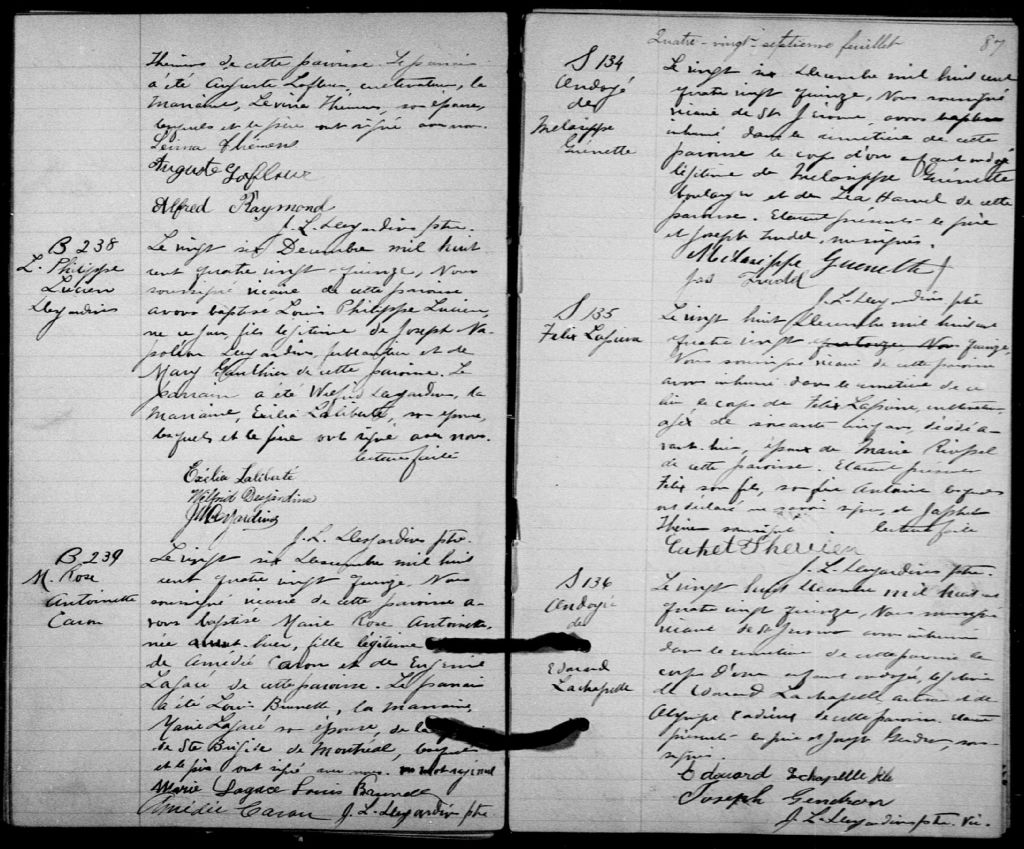 Themens de cette paroisse. Le parrain
a été Auguste Lafleur, cultivateur, la
Marraine, Lévina Themens, son épouse,
lesquels et le père ont signé avec nous.
Lévina Themens
Auguste Lafleur
Alfred Raymond
J. L. Desjardins ptre.
B 238
L. Philippe
Lucien
Desjardins
Le vingt six Decembre mil huit
cent quatre vingt-quinze, Nous
soussigné vicaire de cette paroisse
avons baptisé Louis Philippe Lucien,
né ce jour, fils légitime de Joseph Na-
poléon Desjardins, et de
Mary Gauthier de cette paroisse. Le
parrain a été Wilfrid Desjardins, la
Marraine, Exilia Laliberté, son epouse,
lesquels et le père ont signé avec nous.
lecture faite
Exilia Laliberté
Wilfrid Desjardins
J N Desjardins
J. L. Desjardins ptre.
B 239
M. Rose
Antoinette
Caron
Le vingt six Decembre mil huit
cent quatre vingt quinze, Nous
soussigné vicaire de cette paroisse a-
vons baptisé Marie Rose Antoinette
née avant-hier, fille légitime
de Amédié Caron et de Eugenie
Lagacé de cette paroisse. Le parrain
a été Louis Brunette, la Marraine,
Marie Lagacé son épouse, de la
de Ste Brigide de Montréal, lesquels
et le père ont signé avec nous. un mot rayé nul
Marie Lagacé Louis Brunette
Amédée Caron J. L. Desjardins ptre.
Quatre-vingt-septieme feuillet 87
S 134
Ondoyé
de
Melasippe
Guénette
Le vingt six Decembre mil huit cent
quatre vingt quinze, Nous soussigné
vicaire de St Jérome, avons
inhumé dans le cimetière de cette
paroisse le corps d'un enfant ondoyé
légitime de Melasippe Guénette
boulanger et de Léa Hamel de cette
paroisse. Etaient présents le père
et Joseph Trudel, soussignés.
Melasippe Guenette
Jos Trudel
J. L. Desjardins ptre
S 135
Felix Lapierre
Le vingt huit Decembre mil huit cent
quatre vingt quatorze Nous quinze,
Nous soussigné vicaire de cette paroisse
avons inhumé dans le cimetière de ce
lieu le corps de Felix Lapierre, cultivateur,
agé de soixante cinq ans, décédé a-
vant-hier, époux de Marie Riopel
de cette paroisse. Etaient présents
Felix son fils, son frère Antoine lesquels
ont déclaré ne savoir signer, et Japhet
soussigné. lecture faite
Japhet Therien
J. L. Desjardins ptre.
S 136
Ondoyé
de
Edouard
Lachapelle
Le vingt huit Decembre mil huit cent
quatre vingt quinze, Nous soussigné
vicaire de St Jerome avons inhumé
dans le cimetière de cette paroisse le
corps d'un enfant ondoyé, légitime
de Edouard Lachapelle, et de
Olympe Cadieux de cette paroisse. Etaient
présents le père et Joseph Gendron, sous-
signés.
Edouard Lachapelle fils
Joseph Gendron
J. L. Desjardins ptre. Vic.